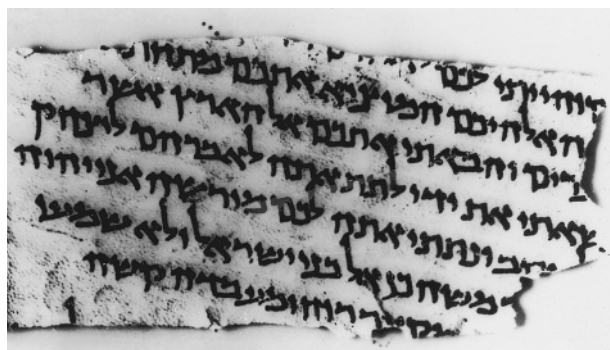 והייתי לכם
ה אלהיכם המוציא אתכם מתחת
רים והבאתי אתכם אל הארץ אשר
שאתי את ידי לתת אתה לאברהם ליצחק
יעקב ונתתי אתה לכם מורשה אני יהוה
משה כן אל בני ישראל ולא שמעו
מקצר רוח ומעבדה קשה